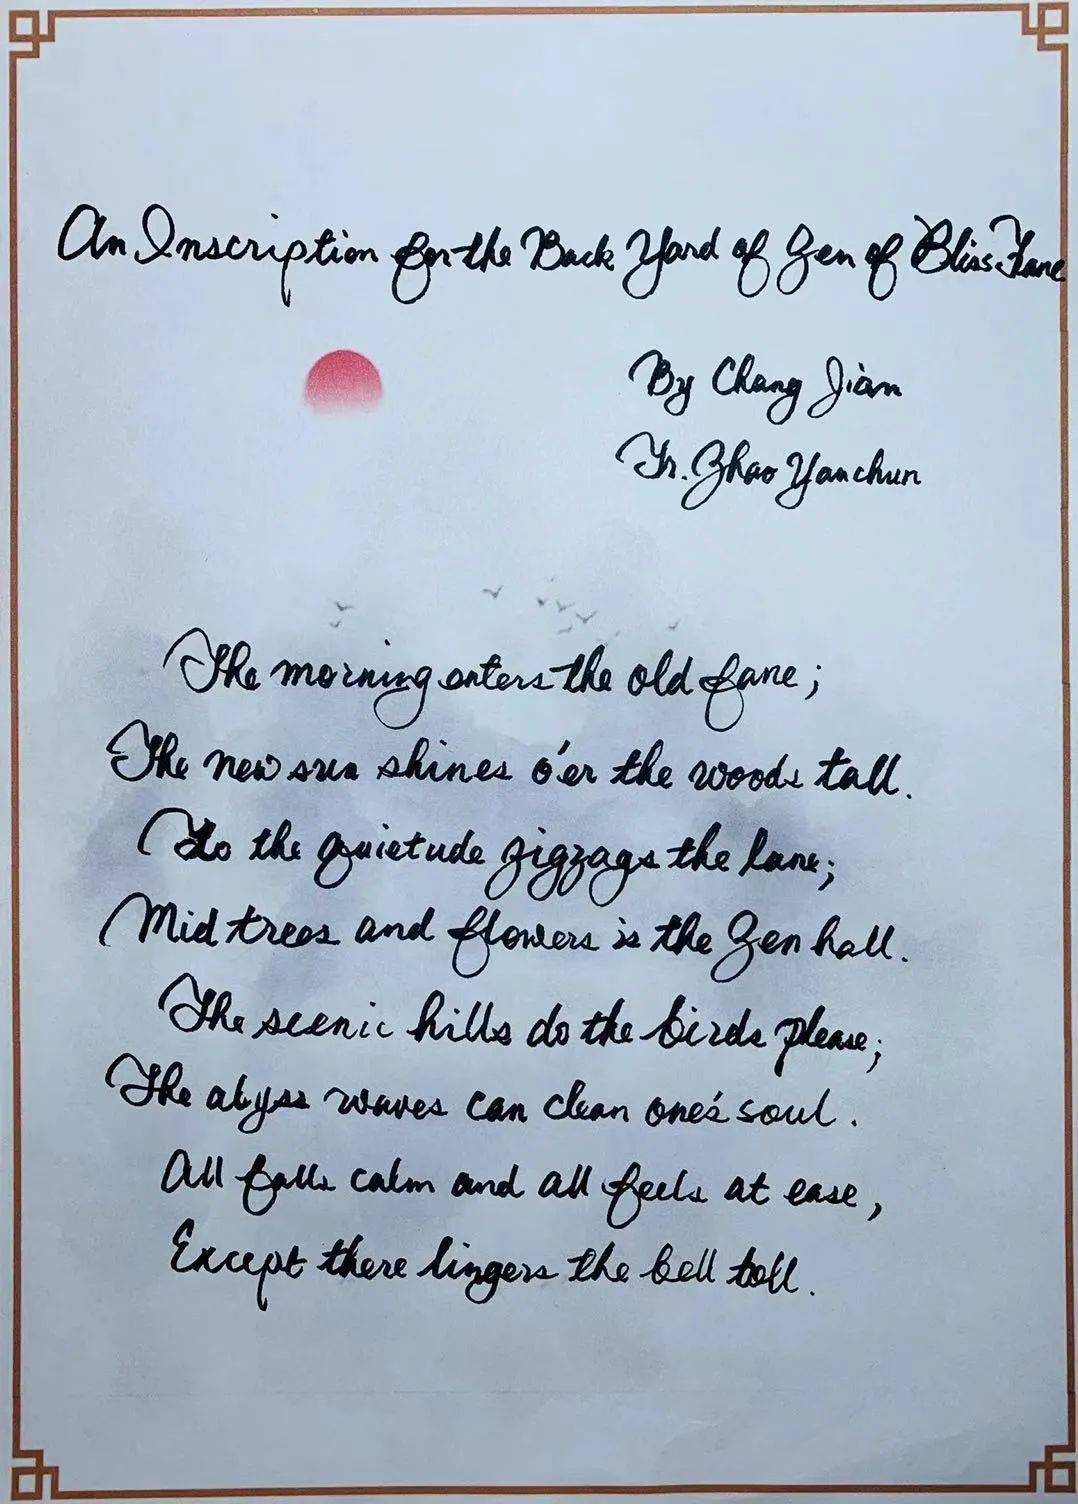 An Inscription for the Back Yard of Zen of Bliss Fane
By Chang Jian
Tr. Zhao Yanchun
The morning enters the old fane;
The new sun shines o'er the woods tall.
To the quietude zigzags the lane;
Mid trees and flowers is the Zen hall.
The scenic hills do the birds please;
The abyss waves can clean one's soul.
All falls calm and all feels at ease,
Except there lingers the bell toll.